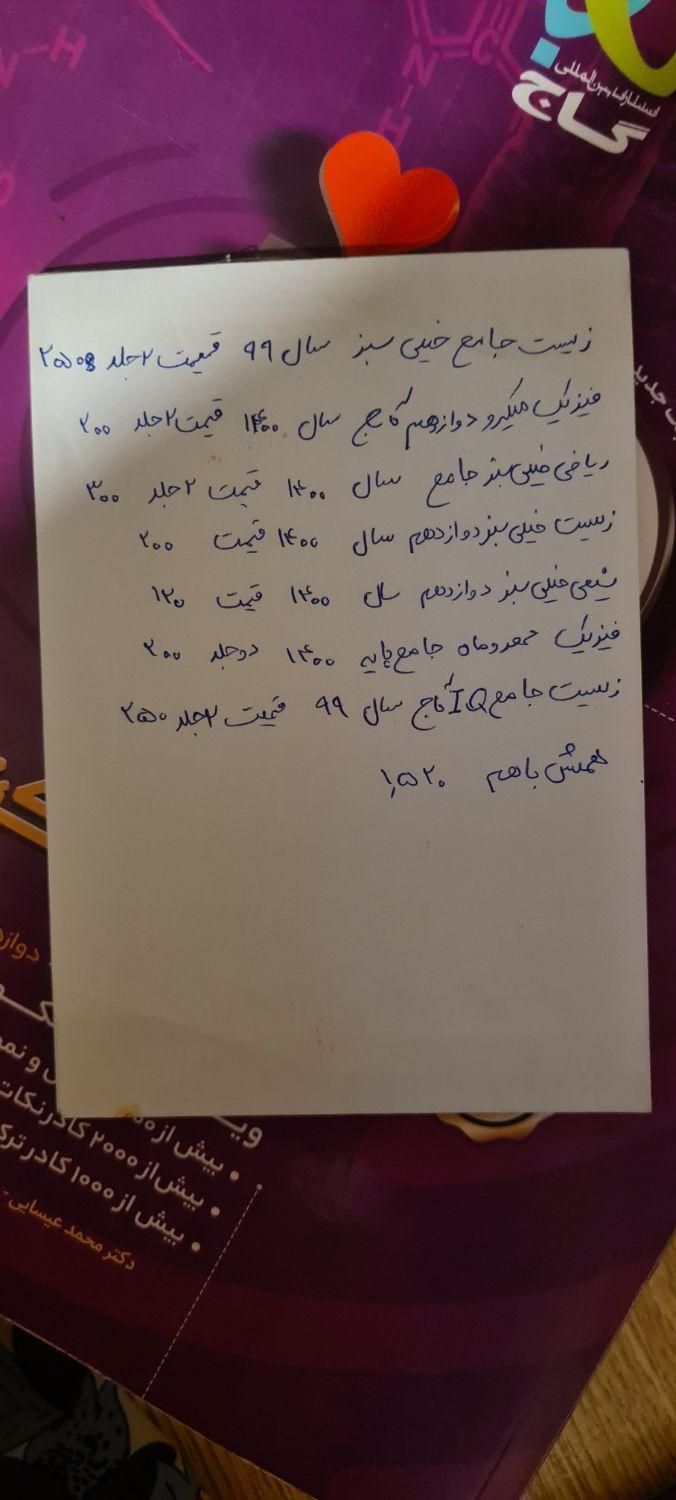 انتشارات بین‌المللی
گاج
زیست جامع خیلی سبز سال ۹۹ قیمت ۲ جلد ۲۵۰
فیزیک میکرو دوازدهم گاج سال ۱۴۰۰ قیمت ۲ جلد ۲۰۰
ریاضی خیلی سبز جامع سال ۱۴۰۰ قیمت ۲ جلد ۳۰۰
زیست خیلی سبز دوازدهم سال ۱۴۰۰ قیمت ۲۰۰
شیمی خیلی سبز دوازدهم سال ۱۴۰۰ قیمت ۱۲۰
فیزیک مهروماه جامع پایه ۱۴۰۰ دوجلد ۲۰۰
زیست جامع IQ گاج سال ۹۹ قیمت ۲ جلد ۲۵۰
همش باهم ۱,۵۲۰
• بیش از
• بیش از ۲۰۰۰ کادر نکات
• بیش از ۱۰۰۰ کادر ترک
دکتر محمد عیسایی -